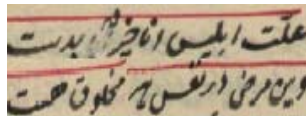 علت ابلیس انا خیر بدست
وین مرض در نفس هر مخلوق هست